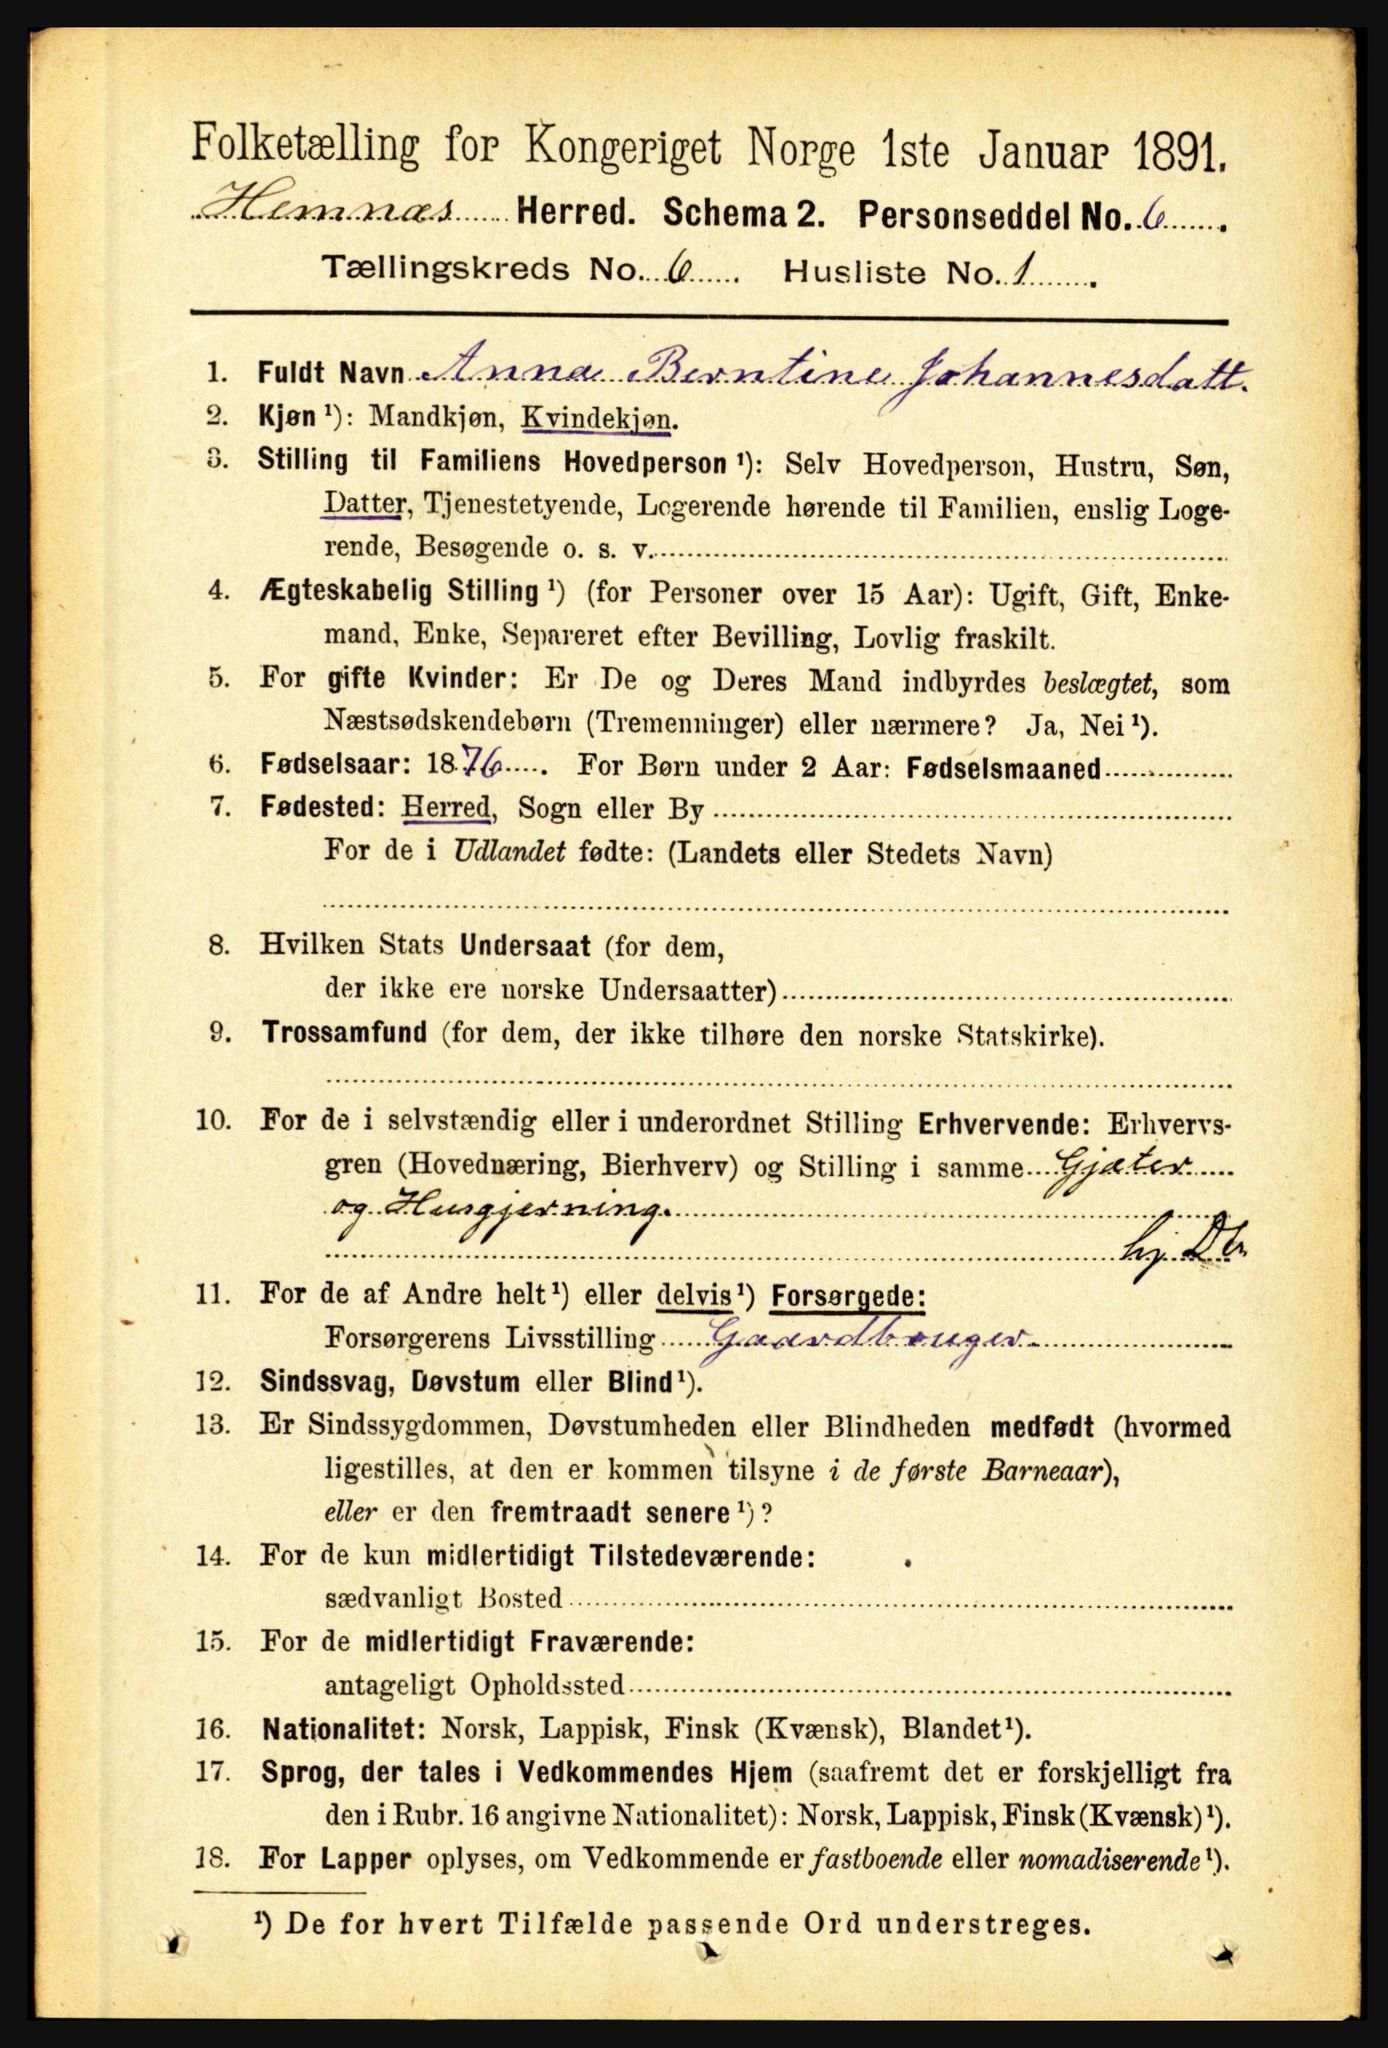 Folketælling for Kongeriget Norge 1ste Januar 1891.
Hemnæs Herred. Schema 2. Personseddel No. 6.
Tællingskreds No. 6. Husliste No. 1.
1. Fuldt Navn Anna Berntine Johannesdatt.
2. Kjøn ¹): Mandkjøn, Kvindekjøn.
3. Stilling til Familiens Hovedperson ¹): Selv Hovedperson, Hustru, Søn,
Datter, Tjenestetyende, Logerende hørende til Familien, enslig Loge-
rende, Besøgende o. s. v.
4. Ægteskabelig Stilling ¹) (for Personer over 15 Aar): Ugift, Gift, Enke-
mand, Enke, Separeret efter Bevilling, Lovlig fraskilt.
5. For gifte Kvinder: Er De og Deres Mand indbyrdes beslægtet, som
Næstsødskendebørn (Tremenninger) eller nærmere? Ja, Nei ¹).
6. Fødselsaar: 1876. For Børn under 2 Aar: Fødselsmaaned
7. Fødested: Herred, Sogn eller By
For de i Udlandet fødte: (Landets eller Stedets Navn)
8. Hvilken Stats Undersaat (for dem,
der ikke ere norske Undersaatter)
9. Trossamfund (for dem, der ikke tilhøre den norske Statskirke).
10. For de i selvstændig eller i underordnet Stilling Erhvervende: Erhvervs-
gren (Hovednæring, Bierhverv) og Stilling i samme Gjæter
og Husgjerning.
hj. Dtr
11. For de af Andre helt ¹) eller delvis ¹) Forsørgede:
Forsørgerens Livsstilling Gaardbruger.
12. Sindssvag, Døvstum eller Blind ¹).
13. Er Sindssygdommen, Døvstumheden eller Blindheden medfødt (hvormed
ligestilles, at den er kommen tilsyne i de første Barneaar),
eller er den fremtraadt senere ¹)?
14. For de kun midlertidigt Tilstedeværende:
sædvanligt Bosted
15. For de midlertidigt Fraværende:
antageligt Opholdssted
16. Nationalitet: Norsk, Lappisk, Finsk (Kvænsk), Blandet ¹).
17. Sprog, der tales i Vedkommendes Hjem (saafremt det er forskjelligt fra
den i Rubr. 16 angivne Nationalitet): Norsk, Lappisk, Finsk (Kvænsk) ¹).
18. For Lapper oplyses, om Vedkommende er fastboende eller nomadiserende ¹).
¹) De for hvert Tilfælde passende Ord understreges.